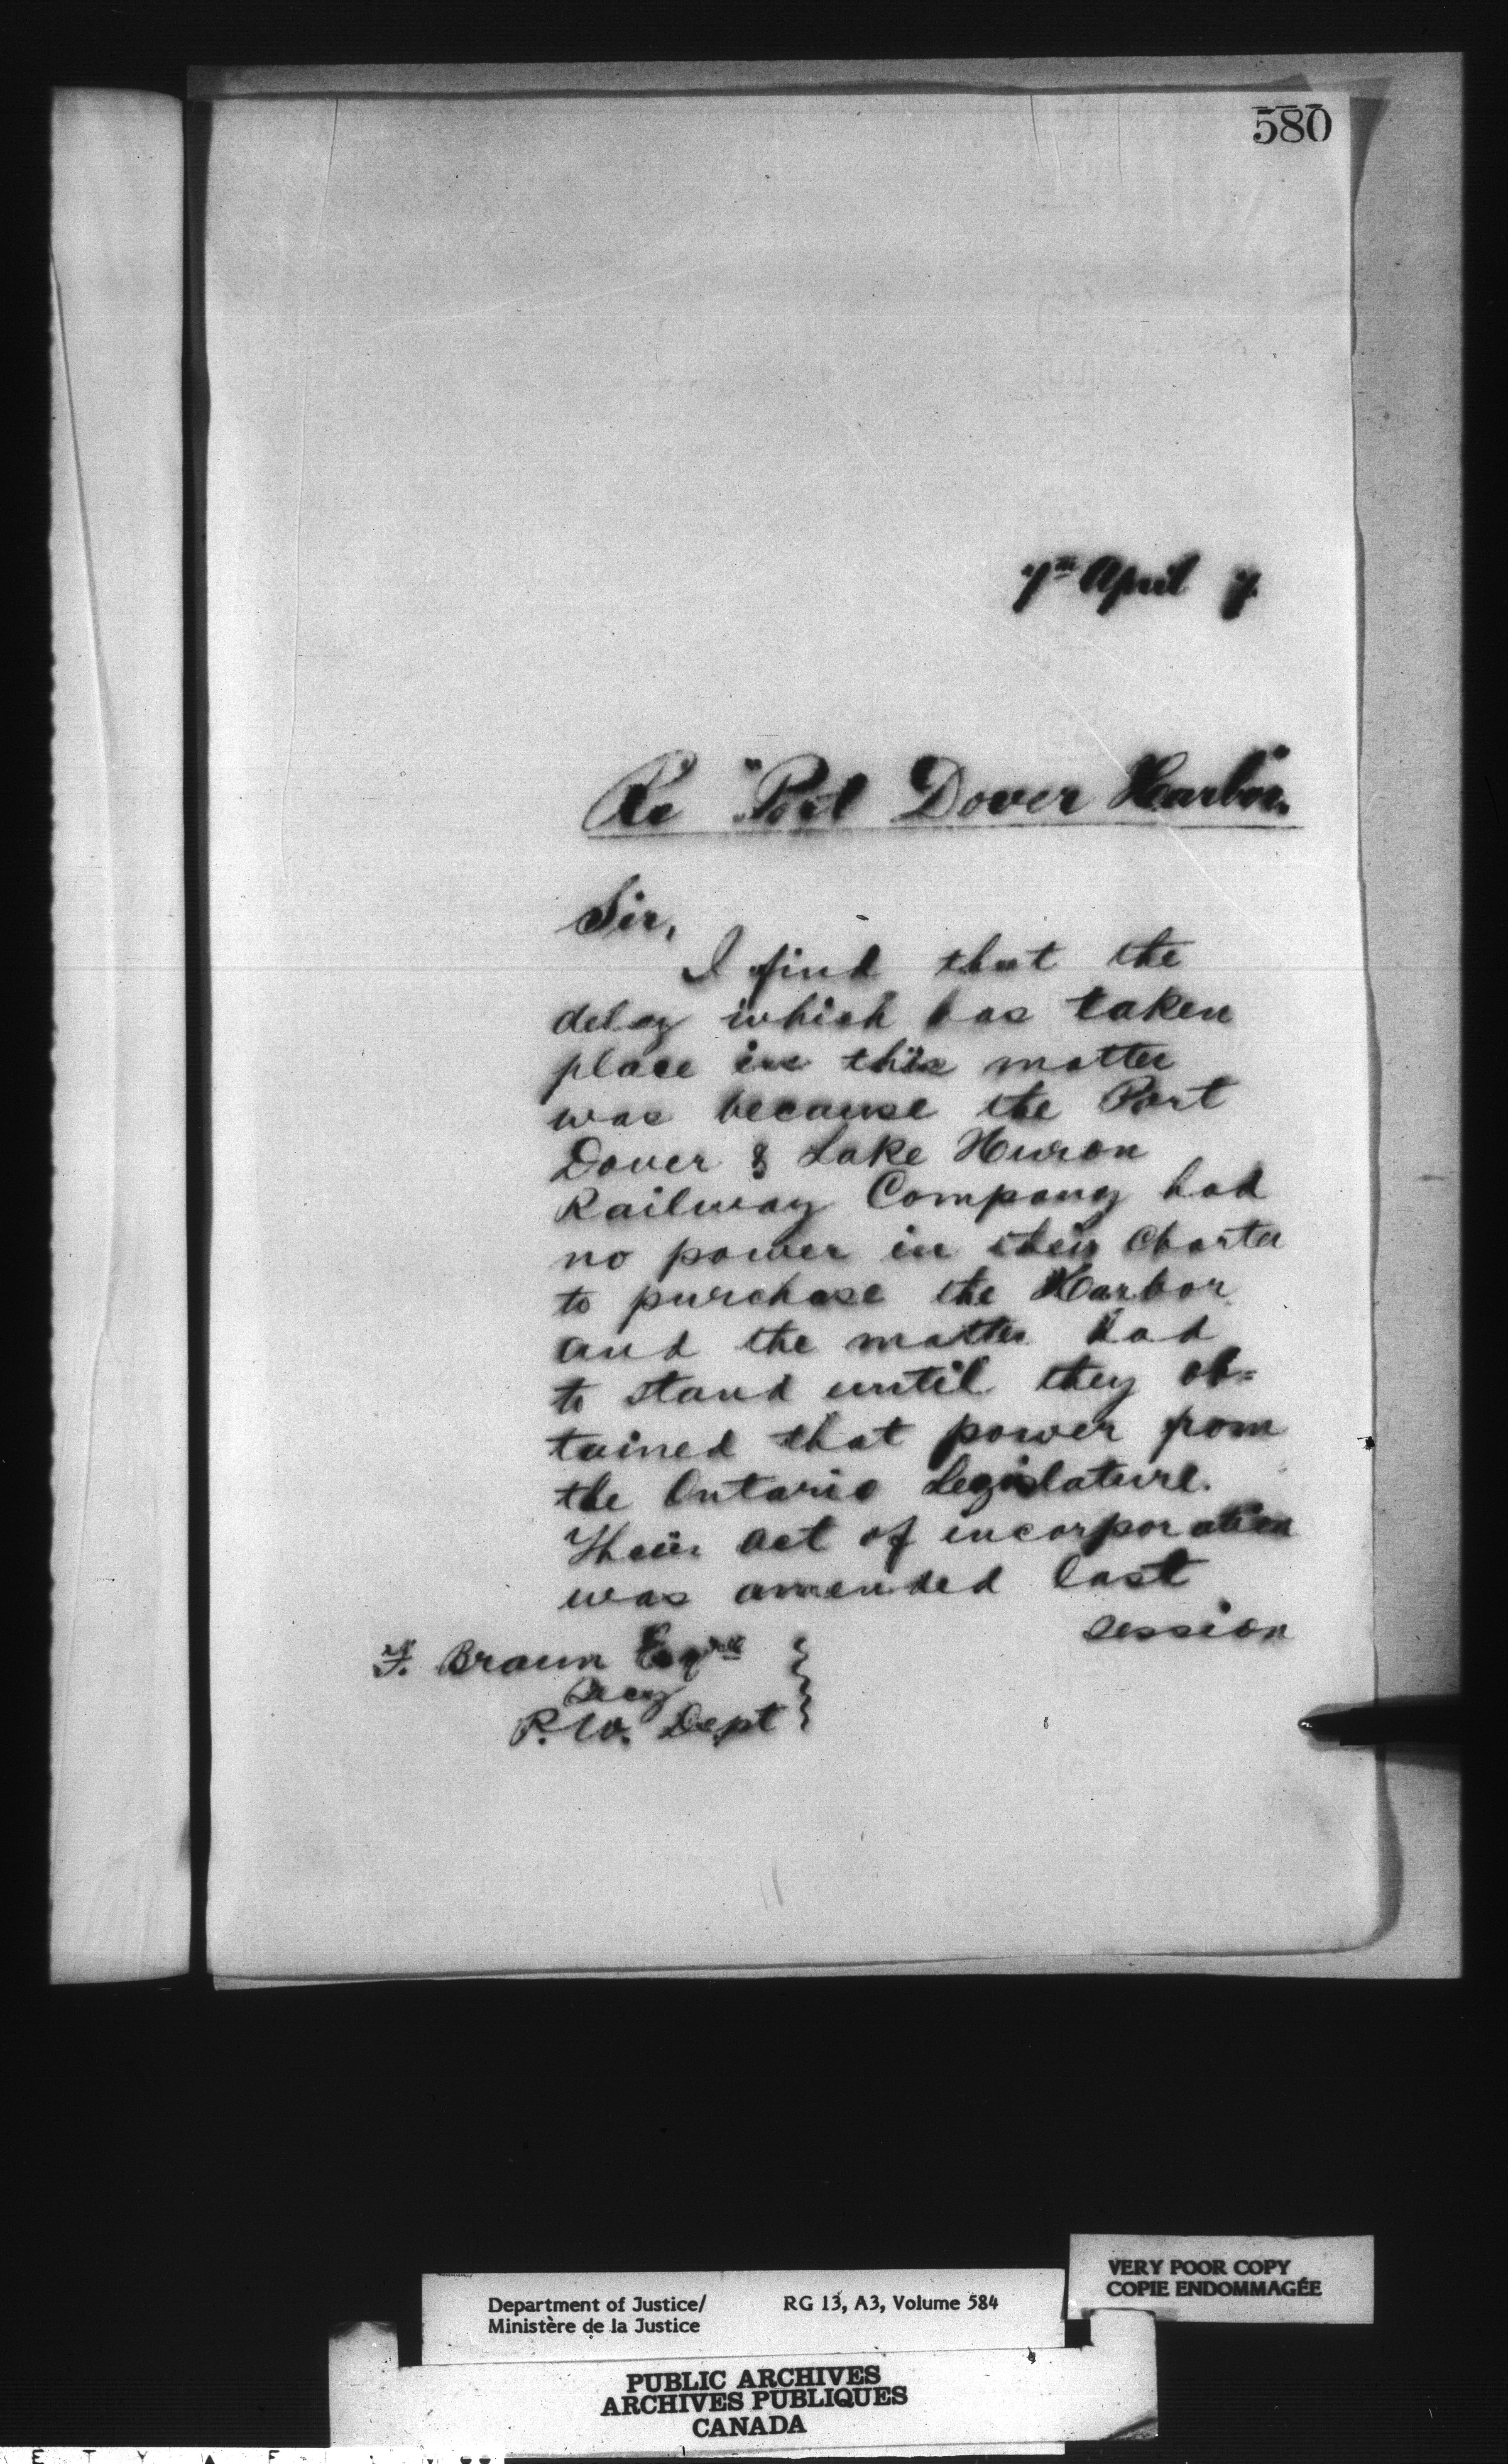 580
7th April 7.
Re "Port Dover Harbor."
Sir,
I find that the
delay which has taken
place in this matter
was because the Port
Dover & Lake Huron
Railway Company had
no power in their Charter
to purchase the Harbor
and the matter had
to stand until they ob=
tained that power from
the Ontario Legislature.
Their act of incorporation
was amended last
session
F. Braun Esqre
Secy
P.W. Dept
VERY POOR COPY
COPIE ENDOMMAGÉE
Department of Justice/ RG 13, A3, Volume 584
Ministère de la Justice
PUBLIC ARCHIVES
ARCHIVES PUBLIQUES
CANADA